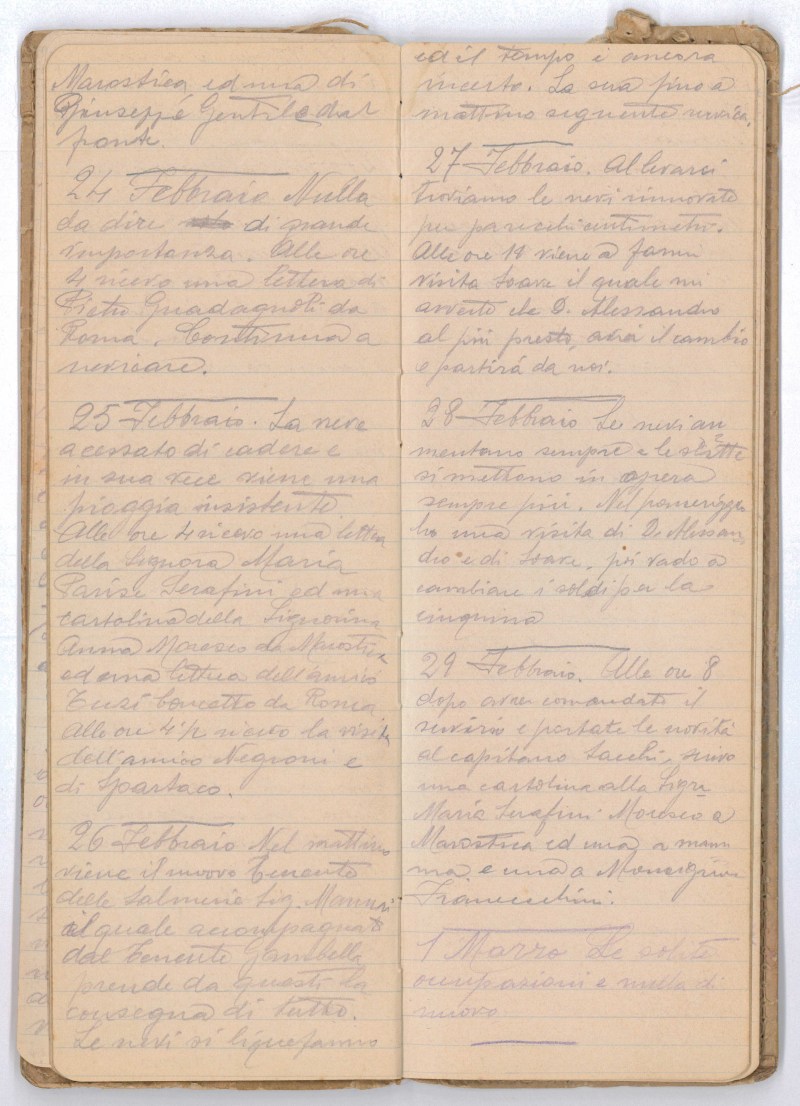 Marostica ed una di
Giuseppe Gentile dal
fonte.
24 Febbraio Nulla
da dire di grande
importanza. Alle ore
4 ricevo una lettera di
Pietro Guadagnoli da
Roma. Continua a
nevicare.
25 Febbraio. La neve
a cessato di cadere e
in sua vece viene una
pioggia insistente.
Alle ore 4 ricevo una lettera
della Signora Maria
Parise Serafini ed una
cartolina della Signorina
Anna Moresco da Marostica
ed una lettera dell'amico
Tuzi da Roma
Alle ore 4 ½ ricevo la visita
dell'amico Negroni e
di Spartaco.
26 Febbraio Nel mattino
viene il nuovo Tenente
delle Salmerie Sig.
il quale accompagnato
dal Tenente Gambella
prende da questi la
consegna di tutto.
Le nevi si liquefanno
ed il tempo è ancora
incerto. La sera fino a
mattino seguente nevica.
27 Febbraio. Al levarci
troviamo le nevi rinnovate
per parecchi centimetri.
Alle ore 11 viene a farmi
visita Soave il quale mi
avverte che D. Alessandro
al più presto, avrà il cambio
e partirà da noi.
28 Febbraio Le nevi au
mentano sempre e le slitte
si mettono in opera
sempre più. Nel pomeriggio
ho una visita di D. Alessan
dro e di Soave, poi vado a
cambiare i soldi per la
cinquina
29 Febbraio. Alle ore 8
dopo aver comandato il
servizio e portate le novità
al capitano Sacchi, scrivo
una cartolina alla Sigra
Maria Serafini Moresco a
Marostica ed una a mam
ma e una a Monsignor
Franceschini.
1 Marzo Le solite
occupazioni e nulla di
nuovo